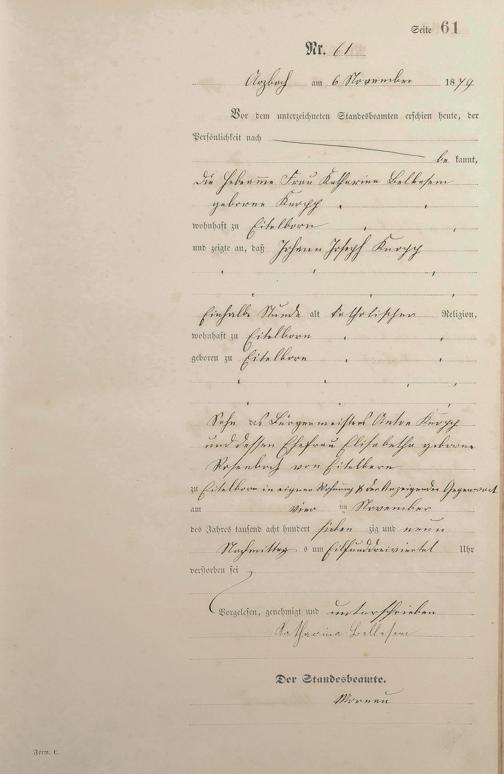 Seite 61
Nr. 61
Arzbach am 6 November 1879.
Vor dem unterzeichneten Standesbeamten erschien heute, der
Persönlichkeit nach
bekannt,
die Hebamme Frau Katharina Bellesem
geborne Knopp
wohnhaft zu Eitelborn
und zeigte an, daß Johann Joseph Knopp
Einhalbe Stunde alt katholischer Religion,
wohnhaft zu Eitelborn
geboren zu Eitelborn
Sohn des Bürgermeisters Anton Knopp
und dessen Ehefrau Elisabetha geborne
Rosenbach von Eitelborn
zu Eitelborn in eigner Wohnung & der Anzeigenden Gegenwart
am vier ten November
des Jahres tausend acht hundert sieben zig und neun
Nachmittag s um Eilfunddreiviertel Uhr
verstorben sei
Vorgelesen, genehmigt und unterschrieben
Katharina Bellesem
Der Standesbeamte.
Form. C.